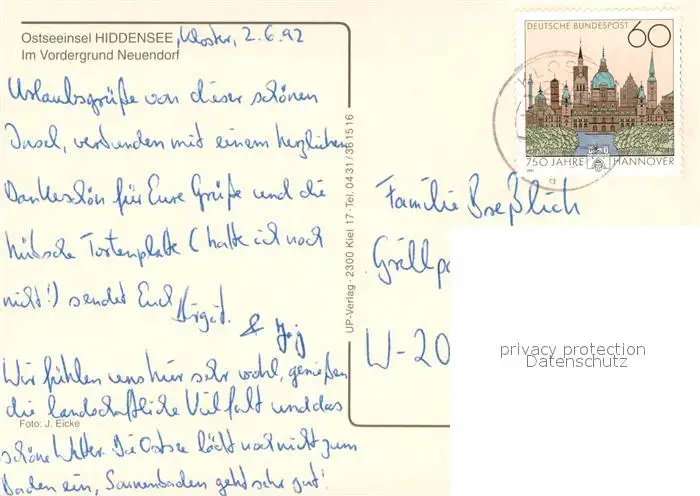 Ostseeinsel HIDDENSEE, Kloster, 2.6.92
Im Vordergrund Neuendorf
Urlaubsgrüße von dieser schönen
Insel, verbunden mit einem herzlichen
Dankeschön für Eure Grüße und die
hübsche Tortenplatte (hatte ich noch
nicht!) sendet Euch Birgit.
&
Wir fühlen uns hier sehr wohl, genießen
die landschaftliche Vielfalt und das
Foto: J. Eicke
schöne Wetter. Die Ostsee lädt noch nicht zum
Baden ein, Sonnenbaden geht sehr gut!
UP-Verlag - 2300 Kiel 17 - Tel. 0431/361516
DEUTSCHE BUNDESPOST 60
750 JAHRE HANNOVER
Familie Breßlich
Grillpa
W-20
privacy protection
Datenschutz